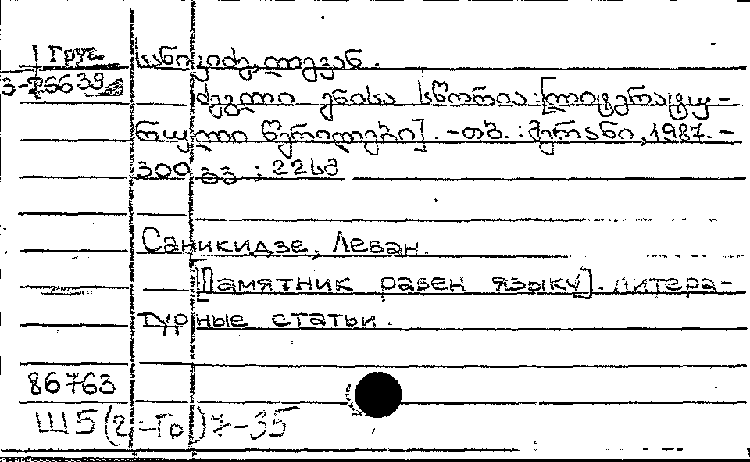 Груз.
სანიკიძე, ლევან.
3-26639
ძეგლი ენისა სწორია: [ლიტერატუ-
რული წერილები]. -თბ. : მერანი, 1987. -
300 გვ ; 22სმ
Саникидзе, Леван.
[Памятник равен языку]. Литера-
турные статьи.
86763
Ш5(2-Го)7-35